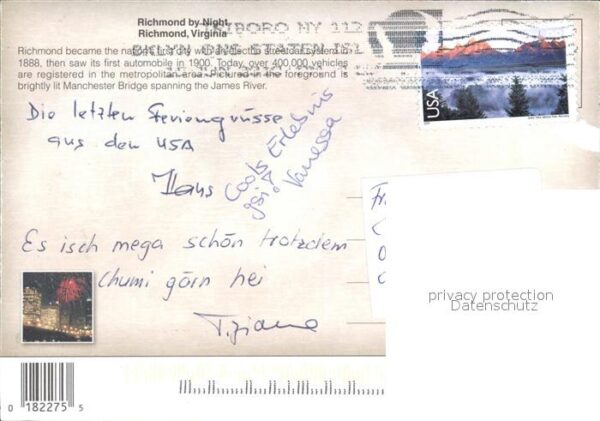 Richmond by Night
Richmond, Virginia
Richmond became the nation's first city with an electric streetcar system in
1888, then saw its first automobile in 1900. Today, over 400,000 vehicles
are registered in the metropolitan area. Pictured in the foreground is
brightly lit Manchester Bridge spanning the James River.
NY 112
BKLYN ONE STATEN ISL
USA
Die letzten Feriengrüsse
aus den USA
Hans
Cools Erlebnis
gsi!
Vanessa
Es isch mega schön trotzdem
chumi görn hei
Tiziana
Fr
privacy protection
Datenschutz
0 182275 5